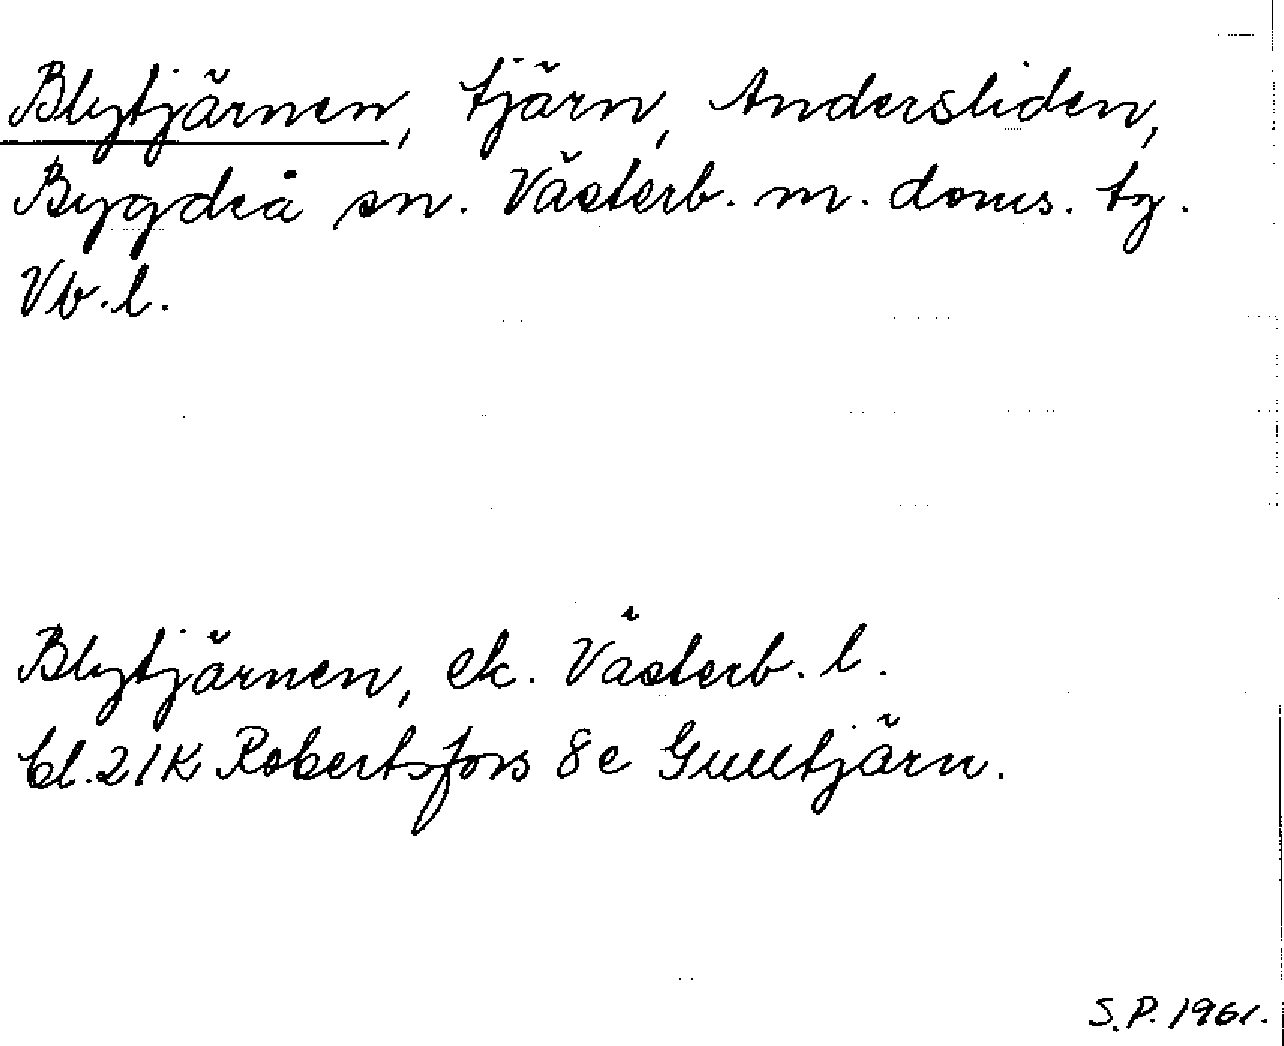 Blytjärnen, tjärn, Andersliden,
Bygdeå sn. Västerb. m. doms. tg.
Vb. l.
Blytjärnen, ek. Västerb. l.
bl. 21K Robertsfors 8e Gulltjärn.
S.P. 1961.